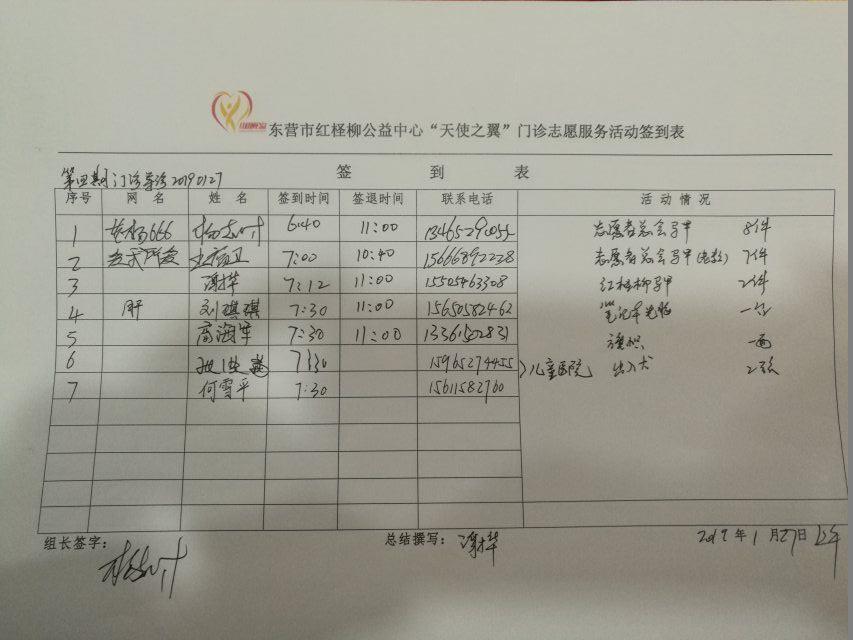 东营市红柽柳公益中心“天使之翼”门诊志愿服务活动签到表
第四期门诊导诊20190127
签 到 表
序号 网 名 姓 名 签到时间 签退时间 联系电话 活 动 情 况
1 666 6:40 11:00 13465290055 志愿者总会马甲 8件
2 7:00 10:40 15666892228 志愿者总会马甲 7件
3 谢华 7:12 11:00 15505463308 红柽柳马甲 2件
4 肝 刘琪琪 7:30 11:00 15650582462 笔记本电脑 一台
5 商海军 7:30 11:00 13361502831 旗帜 一面
6 7:30 15965274455 儿童医院 出入 2张
7 何雪平 7:30 15611582760
组长签字： 总结撰写：谢华 2019年1月27日